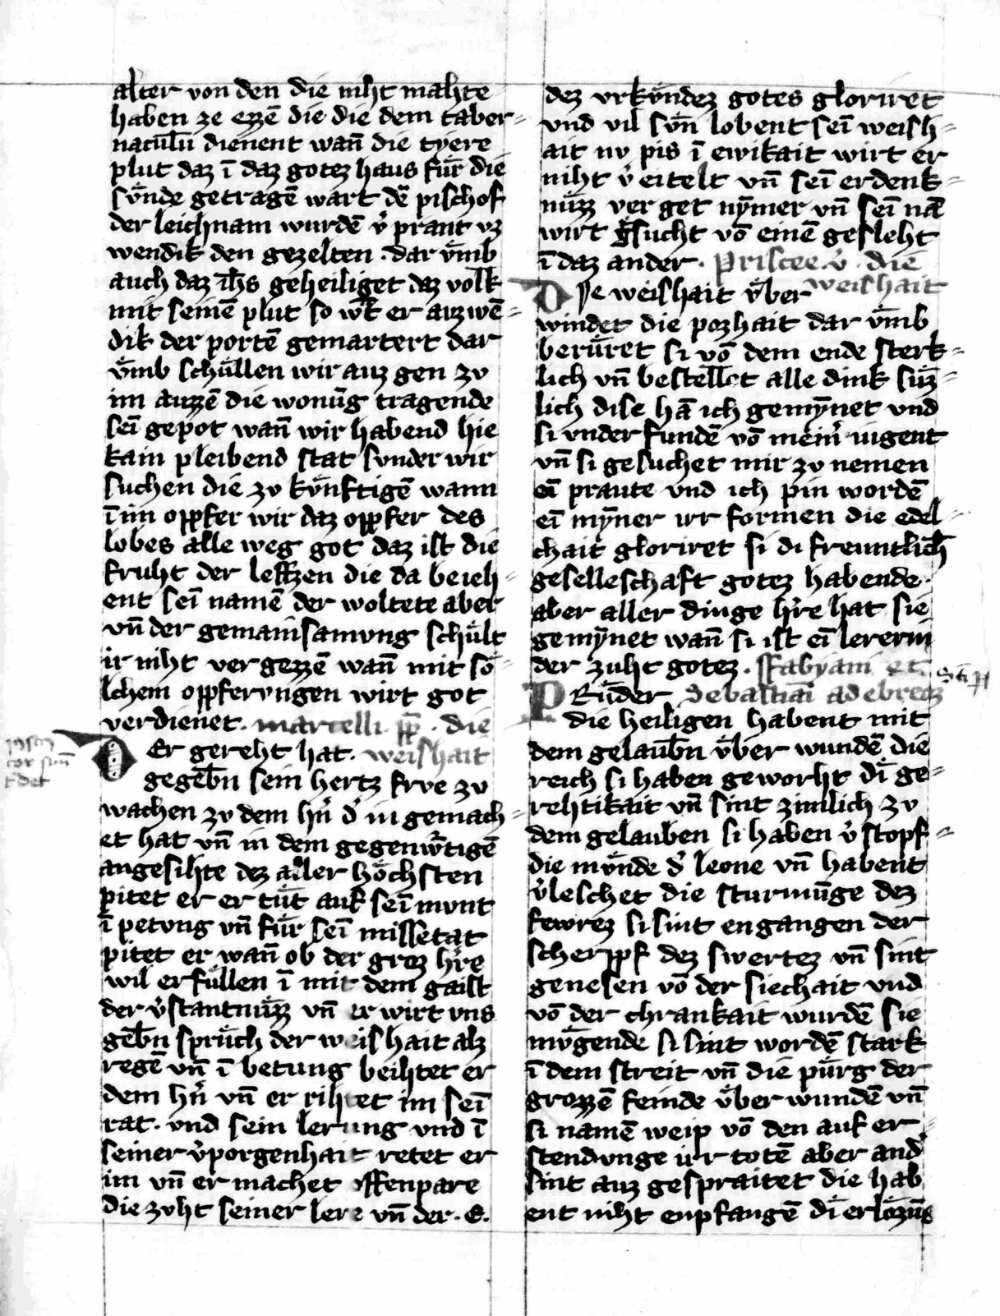 alter von den die niht mahte
haben ze ezzē die die dem taber⸗
naculū dienent wañ die tyere
plut daz ī daz gotez haus fúr die
súnde getragē wart dē pischof
der leichnam wurdē v̉ prant vz
wendik den gezelten · dar vḿb
auch daz ih̄s geheiliget daz volk
mit seinē plut so wͤk er auzwē⸗
dik der portē gemartert dar
vḿb schúllen wir auz gen zv
im auzzē die wonūg tragende
seī gepot wañ wir habend hie
kain pleibend stat sunder wir
suchen die zv kúnftigē wann
ī im opfer wir daz opfer des
lobes alle weg got daz ist die
fruht der leftzen die da beieh⸗
ent seī namē der woltete aber
vñ der gemainsamvng schúlt
ir niht vergezzē wañ mit só⸗
lchem opfervngen wirt got
verdienet · marcelli pp̄ · die
Er gereht hat · weishait
gegebn̄ sein hertz frve zv
wachen zv dem hn̄ d̉ in gemach⸗
et hat vñ in dem gegenẘtigē
angesihte dez aller hóchsten
pitet er er tút auf seī mvnt
ī petvng vñ fúr seī missetat
pitet er wañ ob der groz hr̉e
wil erfúllen ī mit dem gaist
der v̉stantnúzz vñ er wirt vns
gebn̄ sprúch der weishait alz
regē vñ ī betung beihtet er
dem hn̄ vñ er rihtet im seī
rat · vnd sein lerung vnd ī
seiner v̉porgenhait retet er
im vñ er machet offenpare
die zvht seiner lere vñ der · E ·
dez vrkúndez gotes gloriret
vnd vil svn̄ lobent seī weish⸗
ait nv pis ī ewikait wirt er
niht v̉eitelt vñ seī erdenk⸗
núzz verget nȳmer vñ seī nā
wirt gͤsucht vō einē gesleht
ī daz ander · Priscee · v̉ · die
weishait
DJe weishait v́ber
windet die pozhait dar vḿb
berúret si vō dem ende sterk⸗
lich vñ bestellet alle dink súz⸗
lich dise hā ich gemȳnet vnd
si vnderfundē vō meim̉ iugent
vñ si gesuchet mir zv nemen
eī praute vnd ich pin wordē
eī mȳner irr formen die edel⸗
chait gloriret si di freuntlich
geselleschaft gotez habende ·
aber aller dinge hr̉e hat sie
gemȳnet wañ si ist eī lererin
der zuht gotez · Fabyani et
PRúder Sebastiāi ad ebreoz
die heiligen habent mit
dem gelaubn̄ v́ber wundē die
reich si haben geworht di ge⸗
rehtikait vñ sint zimlich zv
dem gelauben si haben v̉stopf⸗
die mvnde d̉ leone vñ habent
v̉leschet die sturmūge dez
fewrez si sint engangen der
scherpf dez swertez vñ sint
genesen vō der siechait vnd
vō der chrankait wurdē sie
mv́gende si sint wordē stark
ī dem streit vñ die púrg der
grozzē feinde v́ber wundē vñ
si namē weip vō den auf er
stendvnge ir totē aber and̉
sint auz gespraitet die hab
ent niht enpfangē di erlózūg